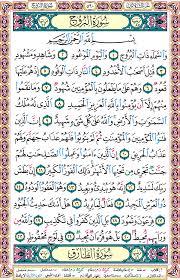 سُورَةُ البُرُوجِ
بِسْمِ ٱللَّهِ ٱلرَّحْمَٰنِ ٱلرَّحِيمِ
وَٱلسَّمَآءِ ذَاتِ ٱلْبُرُوجِ ١ وَٱلْيَوْمِ ٱلْمَوْعُودِ ٢ وَشَاهِدٍ وَمَشْهُودٍ
٣ قُتِلَ أَصْحَٰبُ ٱلْأُخْدُودِ ٤ ٱلنَّارِ ذَاتِ ٱلْوَقُودِ ٥ إِذْ هُمْ عَلَيْهَا
قُعُودٌ ٦ وَهُمْ عَلَىٰ مَا يَفْعَلُونَ بِٱلْمُؤْمِنِينَ شُهُودٌ ٧ وَمَا نَقَمُوا۟
مِنْهُمْ إِلَّآ أَن يُؤْمِنُوا۟ بِٱللَّهِ ٱلْعَزِيزِ ٱلْحَمِيدِ ٨ ٱلَّذِى لَهُۥ مُلْكُ
ٱلسَّمَٰوَٰتِ وَٱلْأَرْضِ وَٱللَّهُ عَلَىٰ كُلِّ شَىْءٍ شَهِيدٌ ٩ إِنَّ ٱلَّذِينَ
فَتَنُوا۟ ٱلْمُؤْمِنِينَ وَٱلْمُؤْمِنَٰتِ ثُمَّ لَمْ يَتُوبُوا۟ فَلَهُمْ عَذَابُ جَهَنَّمَ وَلَهُمْ
عَذَابُ ٱلْحَرِيقِ ١٠ إِنَّ ٱلَّذِينَ ءَامَنُوا۟ وَعَمِلُوا۟ ٱلصَّٰلِحَٰتِ لَهُمْ
جَنَّٰتٌ تَجْرِى مِن تَحْتِهَا ٱلْأَنْهَٰرُ ذَٰلِكَ ٱلْفَوْزُ ٱلْكَبِيرُ ١١ إِنَّ بَطْشَ
رَبِّكَ لَشَدِيدٌ ١٢ إِنَّهُۥ هُوَ يُبْدِئُ وَيُعِيدُ ١٣ وَهُوَ ٱلْغَفُورُ ٱلْوَدُودُ
١٤ ذُو ٱلْعَرْشِ ٱلْمَجِيدُ ١٥ فَعَّالٌ لِّمَا يُرِيدُ ١٦ هَلْ أَتَىٰكَ حَدِيثُ ٱلْجُنُودِ
١٧ فِرْعَوْنَ وَثَمُودَ ١٨ بَلِ ٱلَّذِينَ كَفَرُوا۟ فِى تَكْذِيبٍ ١٩ وَٱللَّهُ مِن
وَرَآئِهِم مُّحِيطٌۢ ٢٠ بَلْ هُوَ قُرْءَانٌ مَّجِيدٌ ٢١ فِى لَوْحٍ مَّحْفُوظٍۭ ٢٢
سُورَةُ الطَّارِقِ